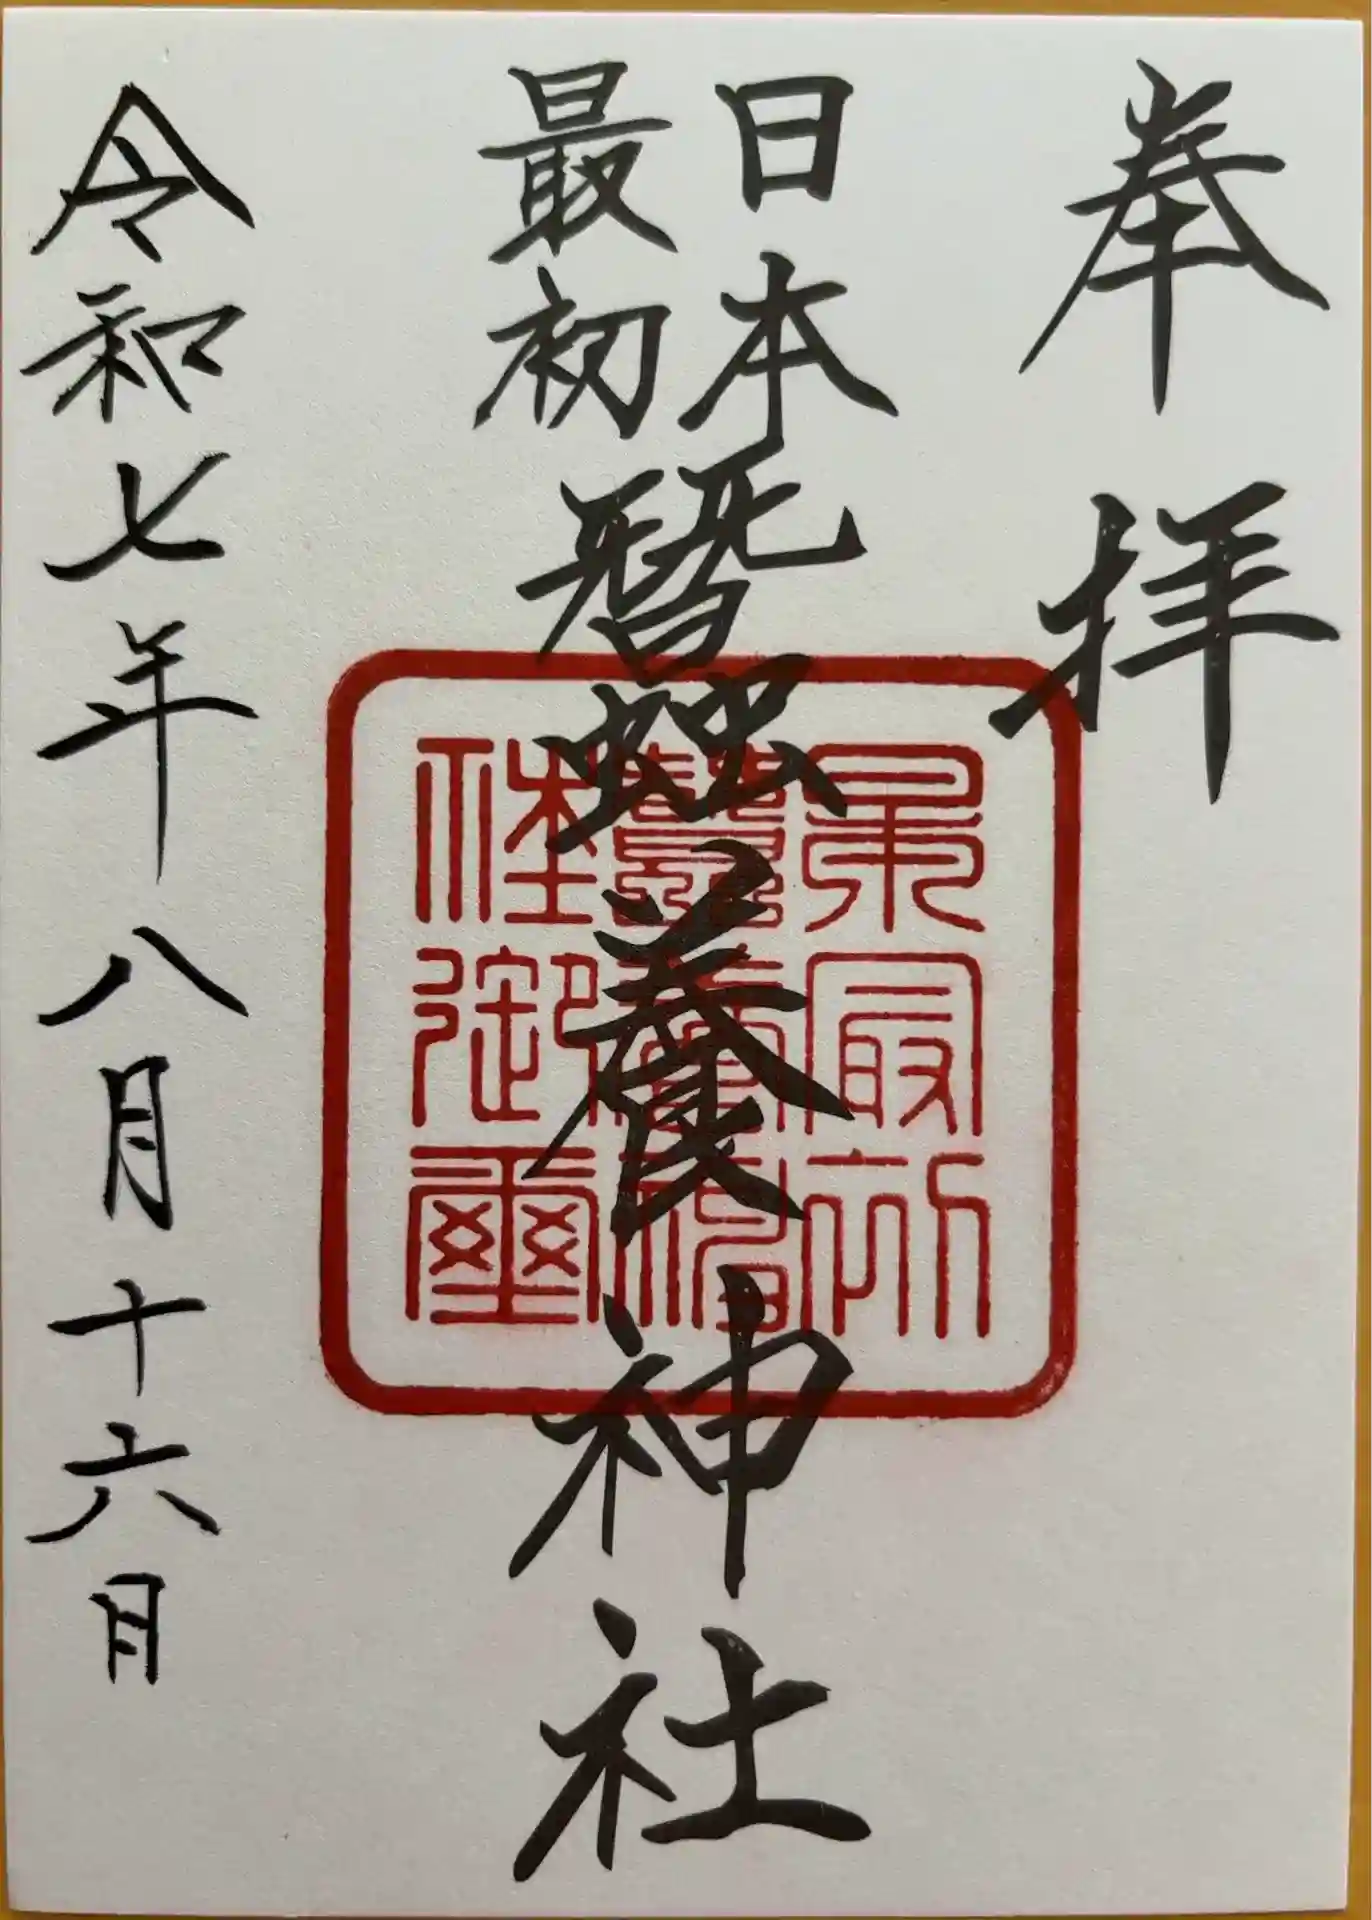 奉拝
日本
最初
蠶養神社
令和七年八月十六日
日本最初
蠶養神
社御璽